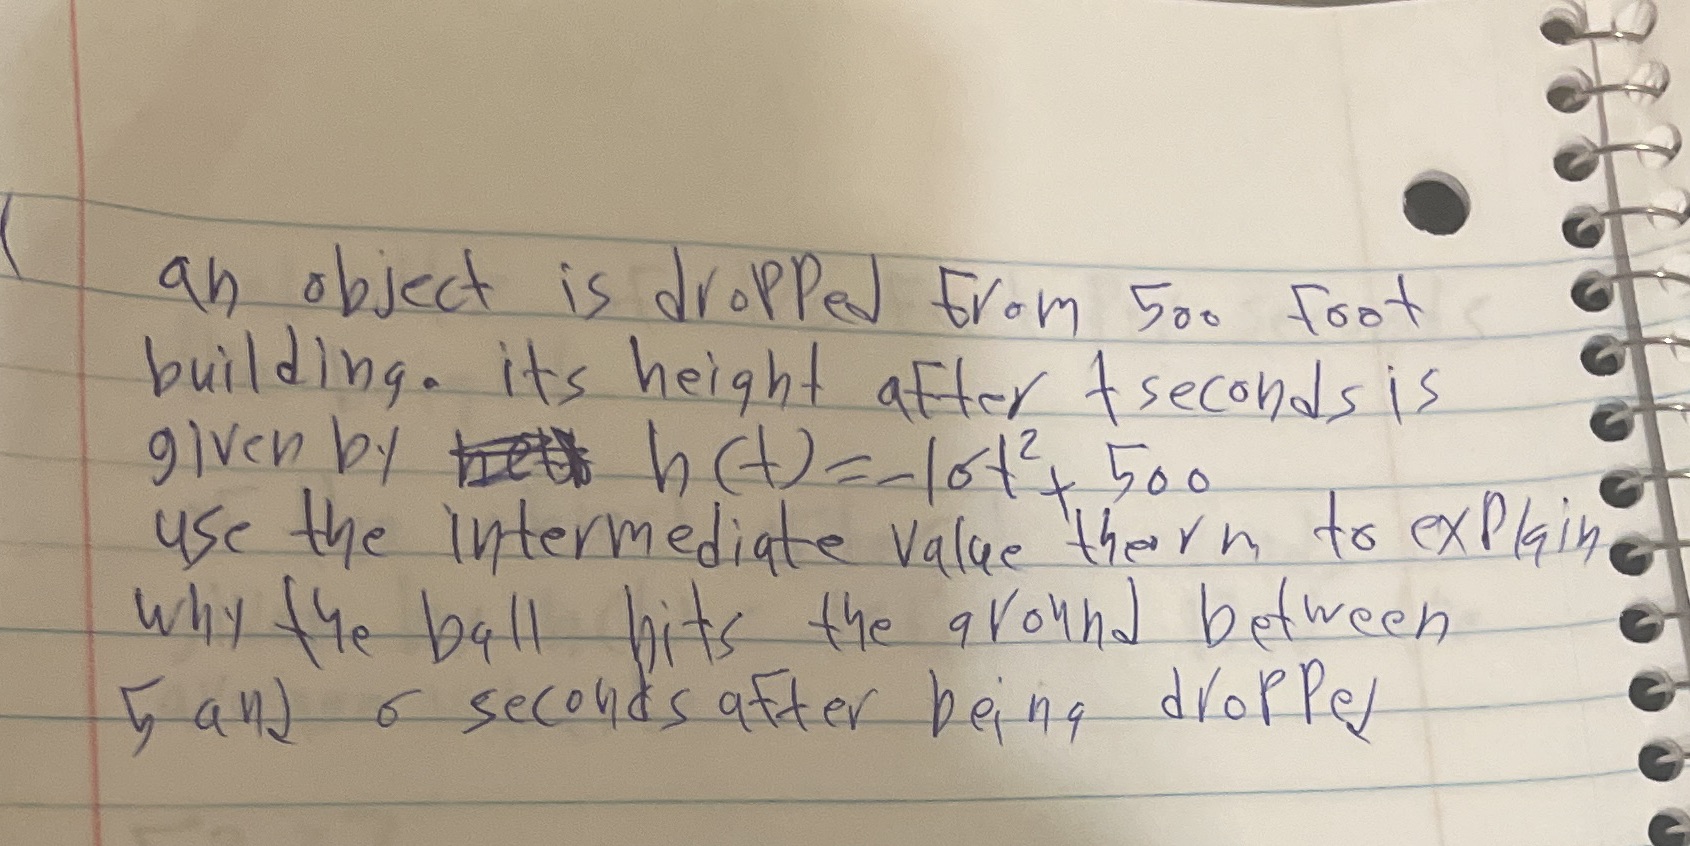 an object is dropped from 500 foot
building. its height after t seconds is
given by h(t)=-16t²+ 500
use the intermediate value therm to explain
why the ball hits the ground between
5 and 6 seconds after being dropped